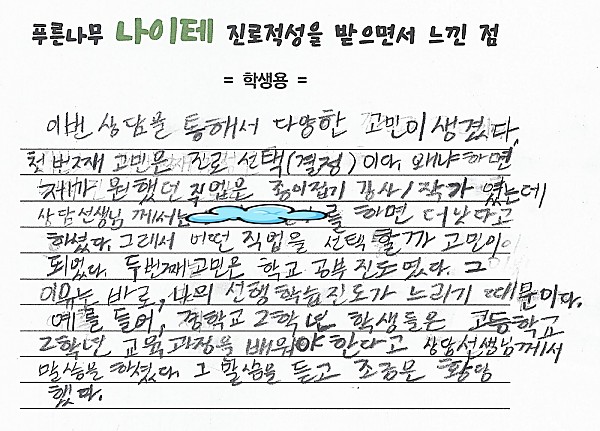 푸른나무 나이테 진로적성을 받으면서 느낀 점
= 학생용 =
이번 상담을 통해서 다양한 고민이 생겼다.
첫 번째 고민은 진로 선택(결정)이다. 왜냐하면
제가 원했던 직업은 종이접기 강사/작가 였는데
상담선생님 께서는 를 하면 더 낫다고
하셨다. 그래서 어떤 직업을 선택 할까 고민이
되었다. 두번째 고민은 학교 공부 진도 였다. 그
이유는 바로, 나의 선행 학습진도가 느리기 때문이다.
예를 들어, 중학교 2학년 학생들은 고등학교
2학년 교육과정을 배워야 한다고 상담선생님께서
말씀을 하셨다. 그 말씀을 듣고 조금은 황당
했다.